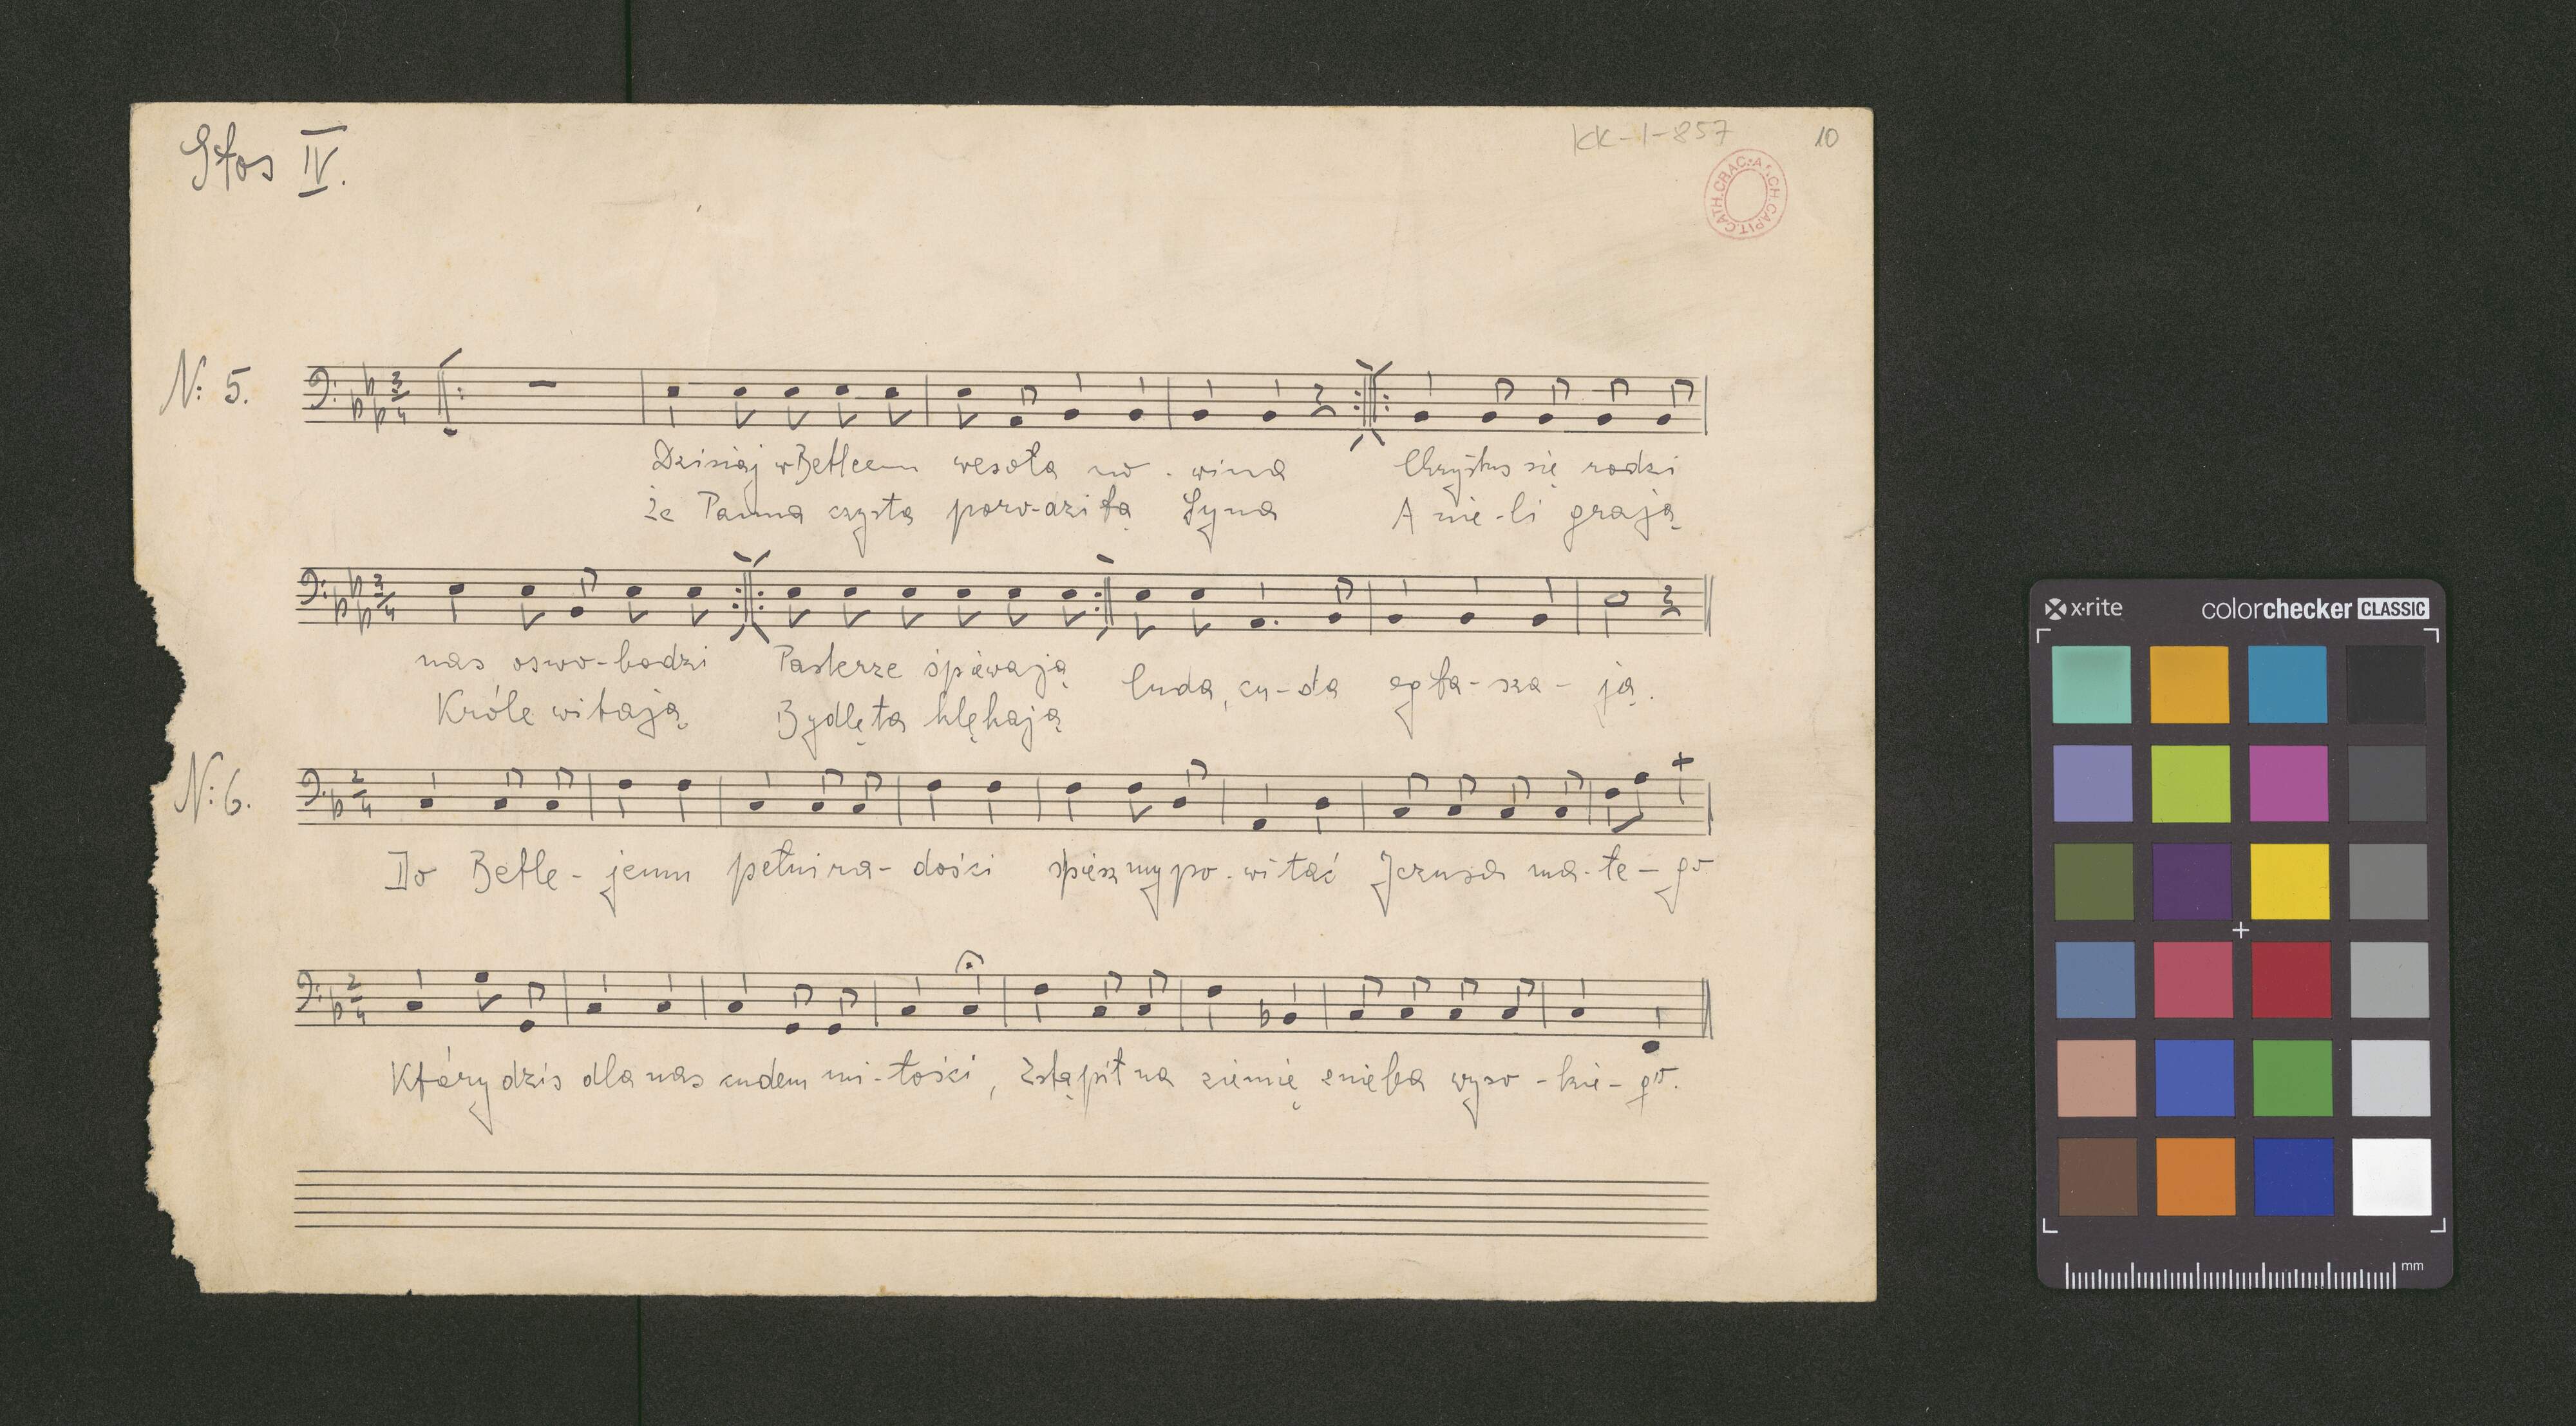 Głos IV.
KK-1-857
10
ARCH.CAPIT.CATH.CRAC.
N: 5.
3/4
Dzisiaj w Betleem wesoła no - wina Chrystus się rodzi
że Panna czysta poro-dziła Syna A nie-li grają
3/4
nas oswo-bodzi Pasterze śpiewają Cuda, cu-da ogła-sza- ją.
Króle witają Bydlęta klękają
N: 6.
2/4
Do Betle - jemu pełni ra- dości spieszmy po - witać Jezusa ma - łe - go
2/4
Który dziś dla nas cudem mi-łości, Zstąpił na ziemię z nieba wyso - kie - go.
x·rite
colorchecker CLASSIC
mm